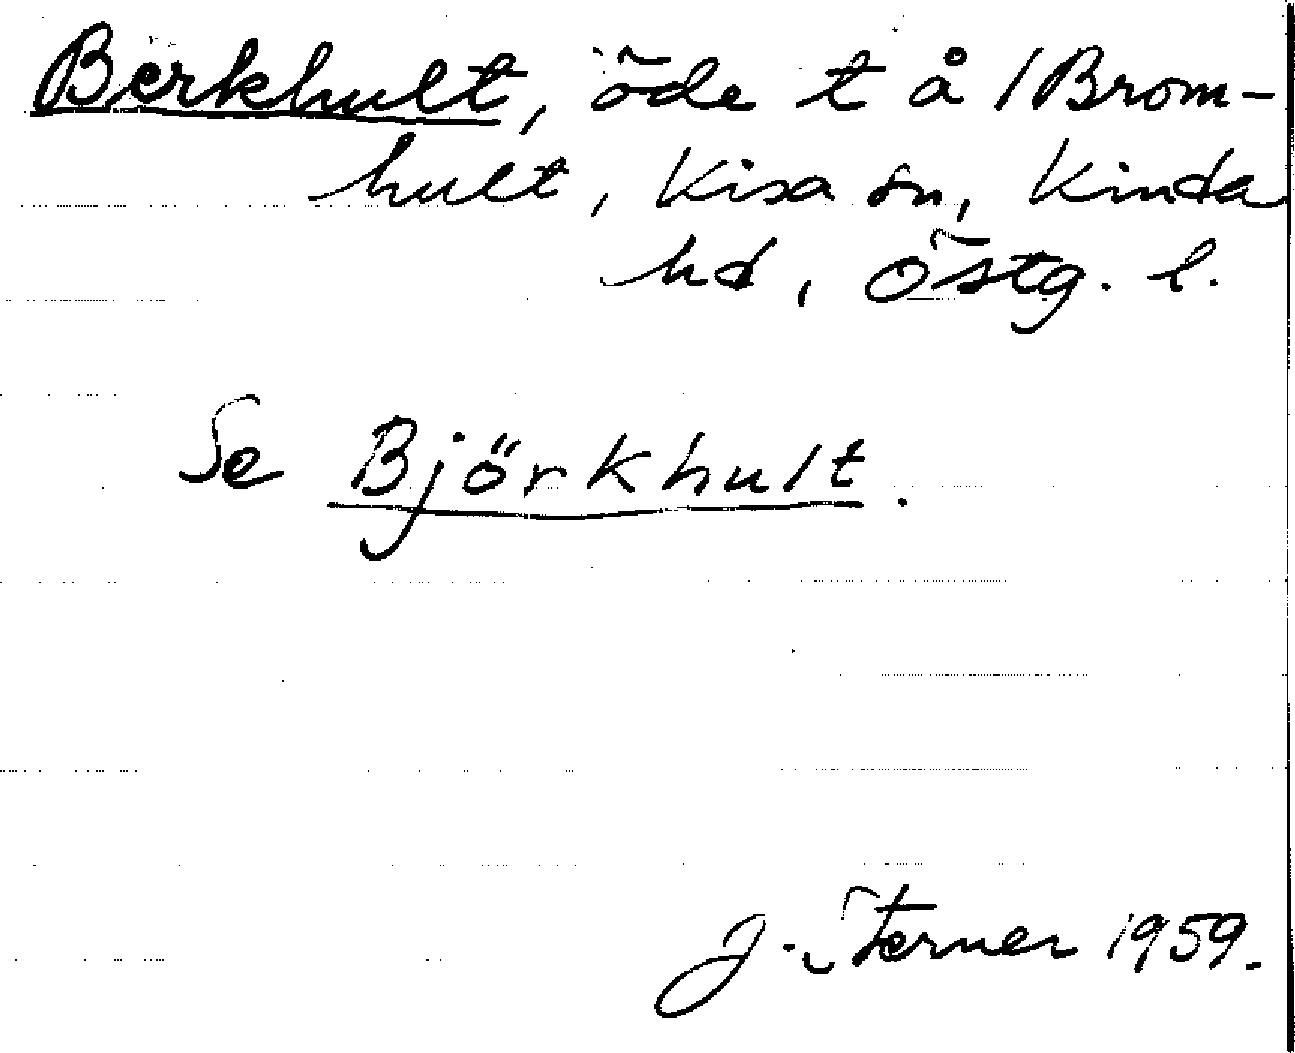 Berkhult, öde t å /Brom-
hult, Kisa sn, Kinda
hd, Östg. l.
Se Björkhult.
J. Sterner 1959.